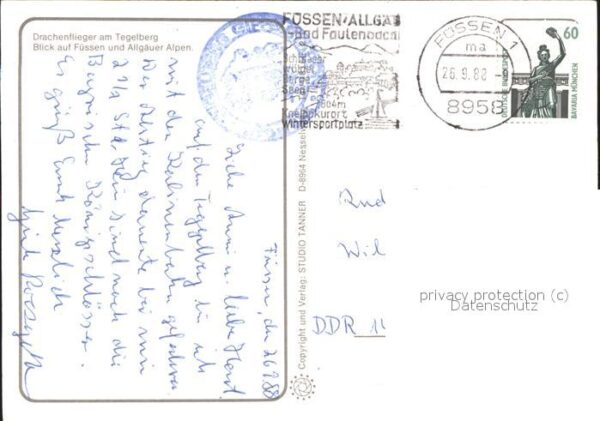 Drachenflieger am Tegelberg
Blick auf Füssen und Allgäuer Alpen.
Füssen, den 26.9.88
Liebe Anni u. liebe Horst.
auf den Tegelberg bin ich
mit der Kabinenbahn gefahren
Der Abstieg dauerte bei mir
2 1/2 Std. Hier sind noch die
Bayrischen Königsschlösser.
Es grüßt Euch herzlich
FÜSSEN/ALLGÄU
-Bad Faulenbach
Berge
Seen
804m
Kneippkurort
Wintersportplatz
FÜSSEN 1
ma
26.9.88
8958
60
DEUTSCHE BUNDESPOST
BAVARIA MÜNCHEN
Copyright und Verlag: STUDIO TANNER D-8964 Nesselw
Rud
Wil
DDR 11
privacy protection (c)
Datenschutz